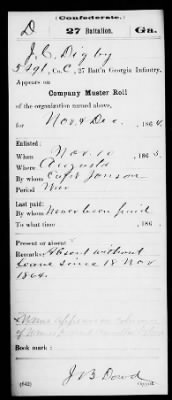 (Confederate.)
D 27 Battalion. Ga.
J. C. Digby
Sergt, Co. C, 27 Batt'n Georgia Infantry.
Appears on
Company Muster Roll
of the organization named above,
for Nov & Dec, 1864.
Enlisted:
When Nov. 10, 1863.
Where Augusta
By whom Capt Jonson
Period War
Last paid:
By whom Never been paid
To what time , 186 .
Present or absent
Remarks: Absent without
leave since 18 Nov
1864.
Name appears in column
of Names present
Book mark:
(642) J B Dowd
Copyist.